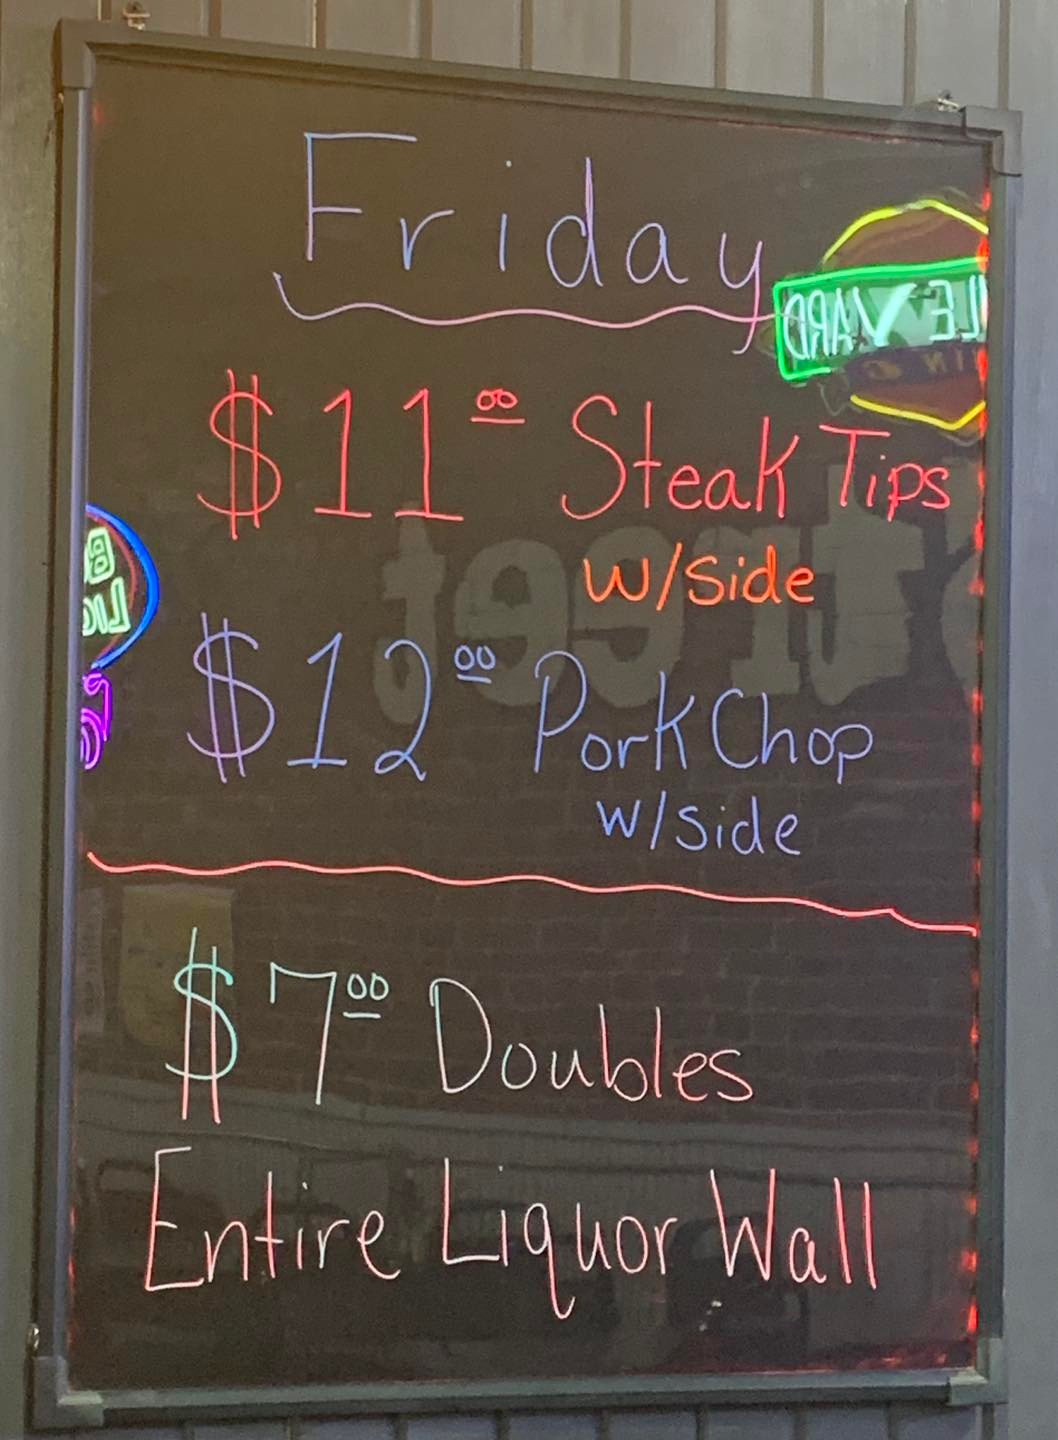 Friday
$11.00 Steak Tips
w/side
$12.00 Pork Chop
w/side
$7.00 Doubles
Entire Liquor Wall